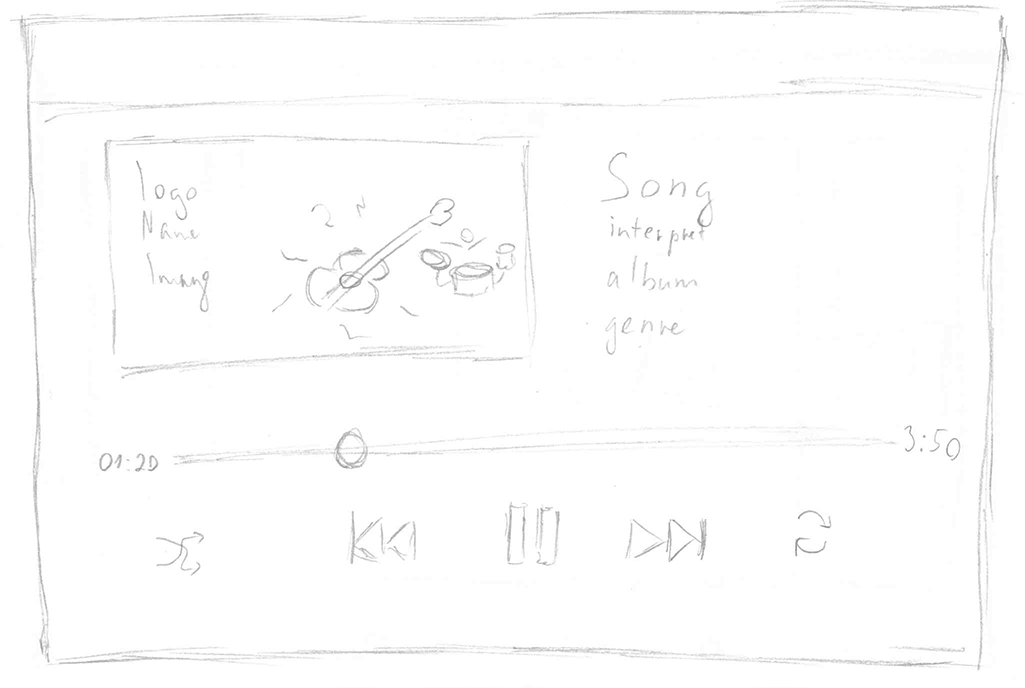 logo
Name
Song
interpret
album
genre
01:20
3:50